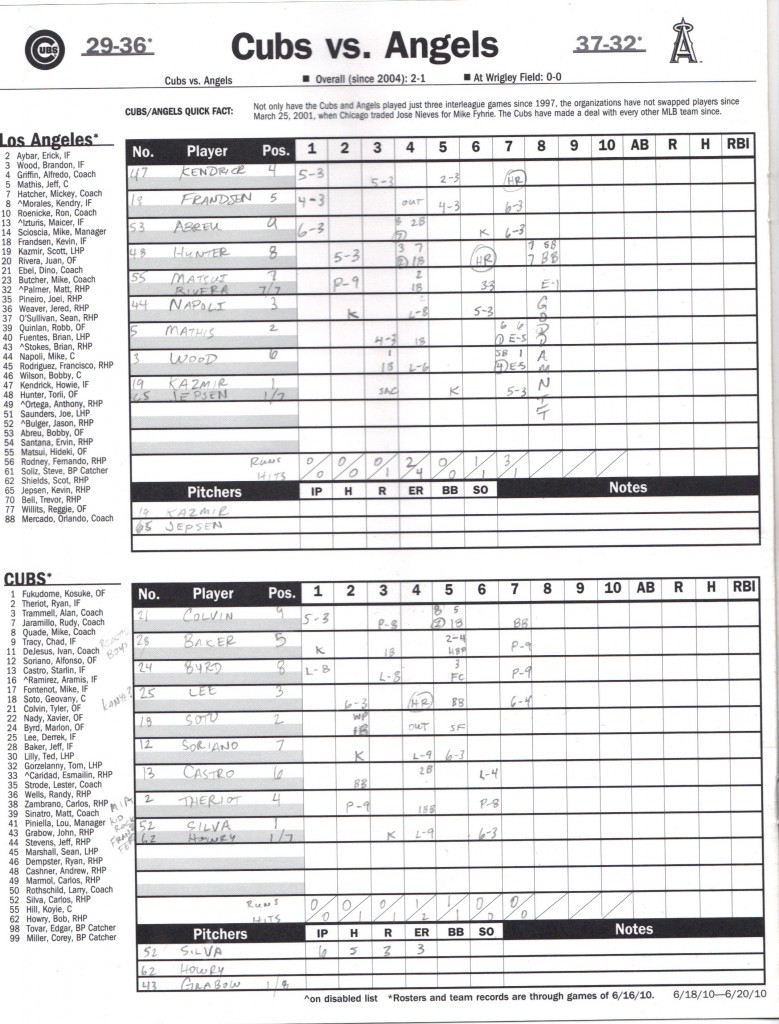 CUBS
29-36*
Cubs vs. Angels
37-32*
A
Cubs vs. Angels ■ Overall (since 2004): 2-1 ■ At Wrigley Field: 0-0
CUBS/ANGELS QUICK FACT: Not only have the Cubs and Angels played just three interleague games since 1997, the organizations have not swapped players since
March 25, 2001, when Chicago traded Jose Nieves for Mike Fyhrie. The Cubs have made a deal with every other MLB team since.
Los Angeles*
2 Aybar, Erick, IF
3 Wood, Brandon, IF
4 Griffin, Alfredo, Coach
5 Mathis, Jeff, C
7 Hatcher, Mickey, Coach
8 ^Morales, Kendry, IF
10 Roenicke, Ron, Coach
13 ^Izturis, Maicer, IF
14 Scioscia, Mike, Manager
18 Frandsen, Kevin, IF
19 Kazmir, Scott, LHP
20 Rivera, Juan, OF
21 Ebel, Dino, Coach
23 Butcher, Mike, Coach
32 ^Palmer, Matt, RHP
35 Pineiro, Joel, RHP
36 Weaver, Jered, RHP
37 O'Sullivan, Sean, RHP
39 Quinlan, Robb, OF
40 Fuentes, Brian, LHP
43 ^Stokes, Brian, RHP
44 Napoli, Mike, C
45 Rodriguez, Francisco, RHP
46 Wilson, Bobby, C
47 Kendrick, Howie, IF
48 Hunter, Torii, OF
49 ^Ortega, Anthony, RHP
51 Saunders, Joe, LHP
52 ^Bulger, Jason, RHP
53 Abreu, Bobby, OF
54 Santana, Ervin, RHP
55 Matsui, Hideki, OF
56 Rodney, Fernando, RHP
61 Soliz, Steve, BP Catcher
62 Shields, Scot, RHP
65 Jepsen, Kevin, RHP
70 Bell, Trevor, RHP
77 Willits, Reggie, OF
88 Mercado, Orlando, Coach
No. Player Pos. 1 2 3 4 5 6 7 8 9 10 AB R H RBI
47 KENDRICK 4 5-3 5-3 2-3 HR
18 FRANDSEN 5 4-3 OUT 4-3 6-3
53 ABREU 9 6-3 8 2B K 6-3
48 HUNTER 8 5-3 3 7 2 1B HR 7 SB 7 BB
55 MATSUI 7 P-9 2 1B 33 E-1
RIVERA 7/7
44 NAPOLI 3 K L-8 5-3
5 MATHIS 2 4-3 1B 6 6 1 E-5
3 WOOD 6 1 1B L-6 SB 1 4 E5
19 KAZMIR 1 SAC K 5-3
65 JEPSEN 1/7
RUNS 0 0 0 2 0 1 3
HITS 0 0 1 4 0 1 1
Pitchers IP H R ER BB SO Notes
19 KAZMIR
65 JEPSEN
CUBS*
1 Fukudome, Kosuke, OF
2 Theriot, Ryan, IF
3 Trammell, Alan, Coach
7 Jaramillo, Rudy, Coach
8 Quade, Mike, Coach
9 Tracy, Chad, IF
11 DeJesus, Ivan, Coach
12 Soriano, Alfonso, OF
13 Castro, Starlin, IF
16 ^Ramirez, Aramis, IF
17 Fontenot, Mike, IF
18 Soto, Geovany, C
21 Colvin, Tyler, OF
22 Nady, Xavier, OF
24 Byrd, Marlon, OF
25 Lee, Derrek, IF
28 Baker, Jeff, IF
30 Lilly, Ted, LHP
32 Gorzelanny, Tom, LHP
33 ^Caridad, Esmailin, RHP
35 Strode, Lester, Coach
36 Wells, Randy, RHP
38 Zambrano, Carlos, RHP
39 Sinatro, Matt, Coach
41 Piniella, Lou, Manager
43 Grabow, John, RHP
44 Stevens, Jeff, RHP
45 Marshall, Sean, LHP
46 Dempster, Ryan, RHP
48 Cashner, Andrew, RHP
49 Marmol, Carlos, RHP
50 Rothschild, Larry, Coach
52 Silva, Carlos, RHP
55 Hill, Koyie, C
62 Howry, Bob, RHP
98 Tovar, Edgar, BP Catcher
99 Miller, Corey, BP Catcher
No. Player Pos. 1 2 3 4 5 6 7 8 9 10 AB R H RBI
21 COLVIN 9 5-3 P-8 8 5 2 1B BB
28 BAKER 5 K 1B 2-4 HBP P-9
24 BYRD 8 L-8 L-8 3 FC P-9
25 LEE 3 6-3 HR BB 6-4
18 SOTO 2 WP OUT SF
12 SORIANO 7 K L-9 6-3
13 CASTRO 6 BB 2B L-4
2 THERIOT 4 P-9 P-8
52 SILVA 1 K L-9 6-3
62 HOWRY 1/7
RUNS 0 0 0 1 1 0 0
HITS 0 1 1 2 1 0 0
Pitchers IP H R ER BB SO Notes
52 SILVA 6 5 3 3
62 HOWRY
43 GRABOW 1/8
^on disabled list *Rosters and team records are through games of 6/16/10. 6/18/10—6/20/10